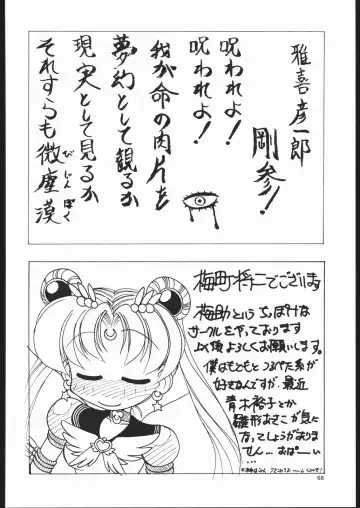 雅喜彦一郎
剛参!
呪われよ!
呪われよ!
我が命の肉片を
夢幻として観るか
現実として見るか
それすらも微塵漠
びじんばく
梅町将二でございます
梅助というちっぽけな
サークルをやっております
以後よろしくお願いします。
僕はもともとつるぺた系が
好きなんですが、最近
青木裕子とか
雛形あきこが気に
なってしょうがありま
せん…おぱーい
…
68